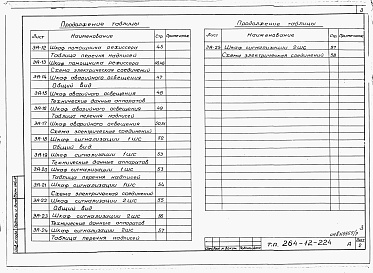 3
Продолжение таблицы
Лист Наименование Стр. Примечание
ЭА-12 Шкаф помощника режиссера 45
Таблица перечня надписей
ЭА-13 Шкаф помощника режиссера
Схема электрическая соединений
ЭА-14 Шкаф аварийного освещения 47
Общий вид
ЭА-15 Шкаф аварийного освещения 48
Технические данные аппаратов
ЭА-16 Шкаф аварийного освещения 49
Таблица перечня надписей
ЭА-17 Шкаф аварийного освещения
Схема электрическая соединений
ЭА-18 Шкаф сигнализации 1ШС 52
Общий вид
ЭА-19 Шкаф сигнализации 1ШС 53
Технические данные аппаратов
ЭА-20 Шкаф сигнализации 1ШС 53
Таблица перечня надписей
ЭА-21 Шкаф сигнализации 1ШС 54
Схема электрическая соединений
ЭА-22 Шкаф сигнализации 2ШС 55
Общий вид
ЭА-23 Шкаф сигнализации 2ШС 56
Технические данные аппаратов
ЭА-24 Шкаф сигнализации 2ШС 57
Таблица перечня надписей
Продолжение таблицы
Лист Наименование Стр. Примечание
ЭА-25 Шкаф сигнализации 2ШС 57
Схема электрическая соединений 58
т.п. 264-12-224 А
Лист